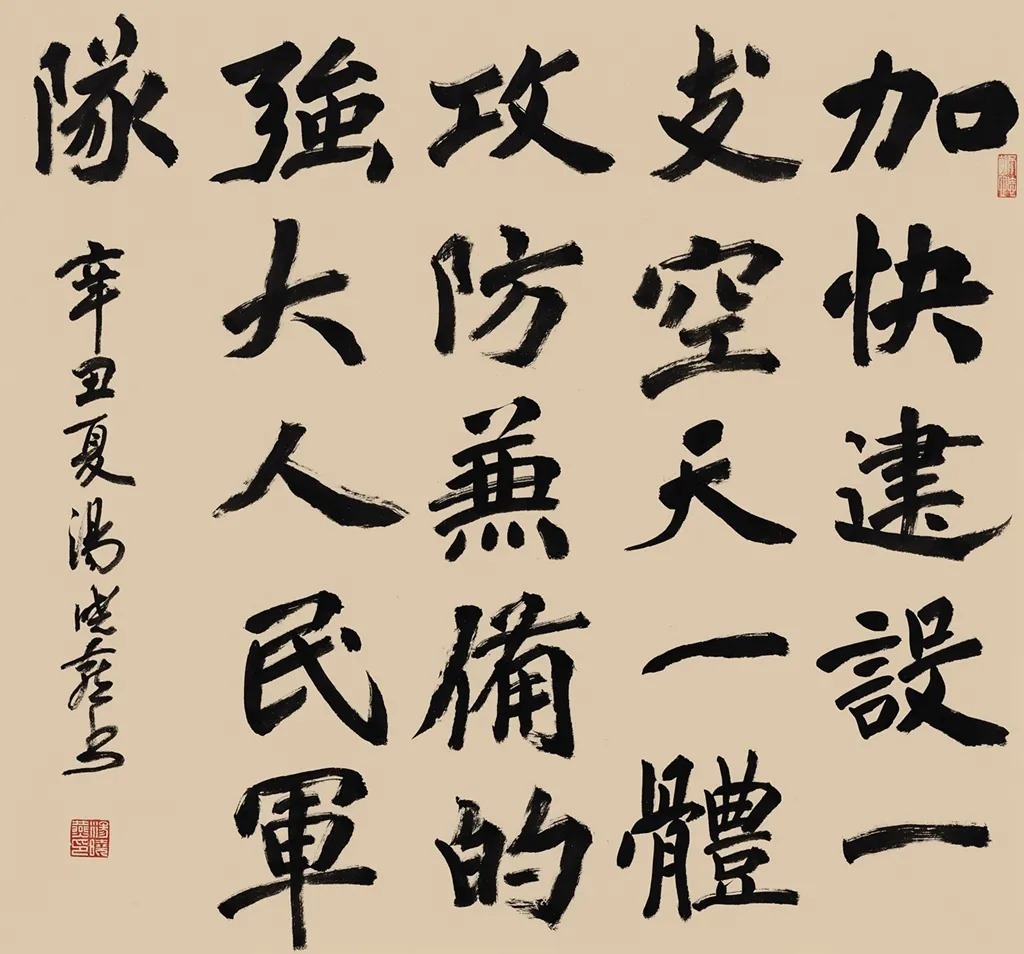 加快建設一
支空天一體
攻防兼備的
強大人民軍
隊
辛丑夏湯曉燕书